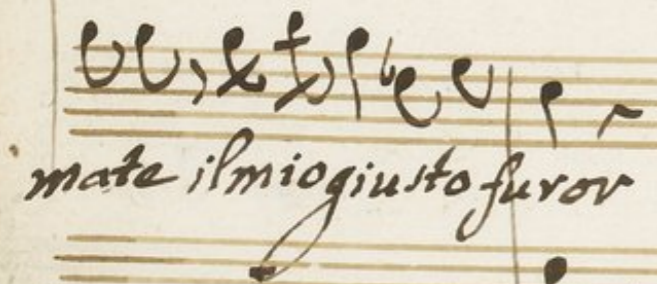 mate il mio giusto furor